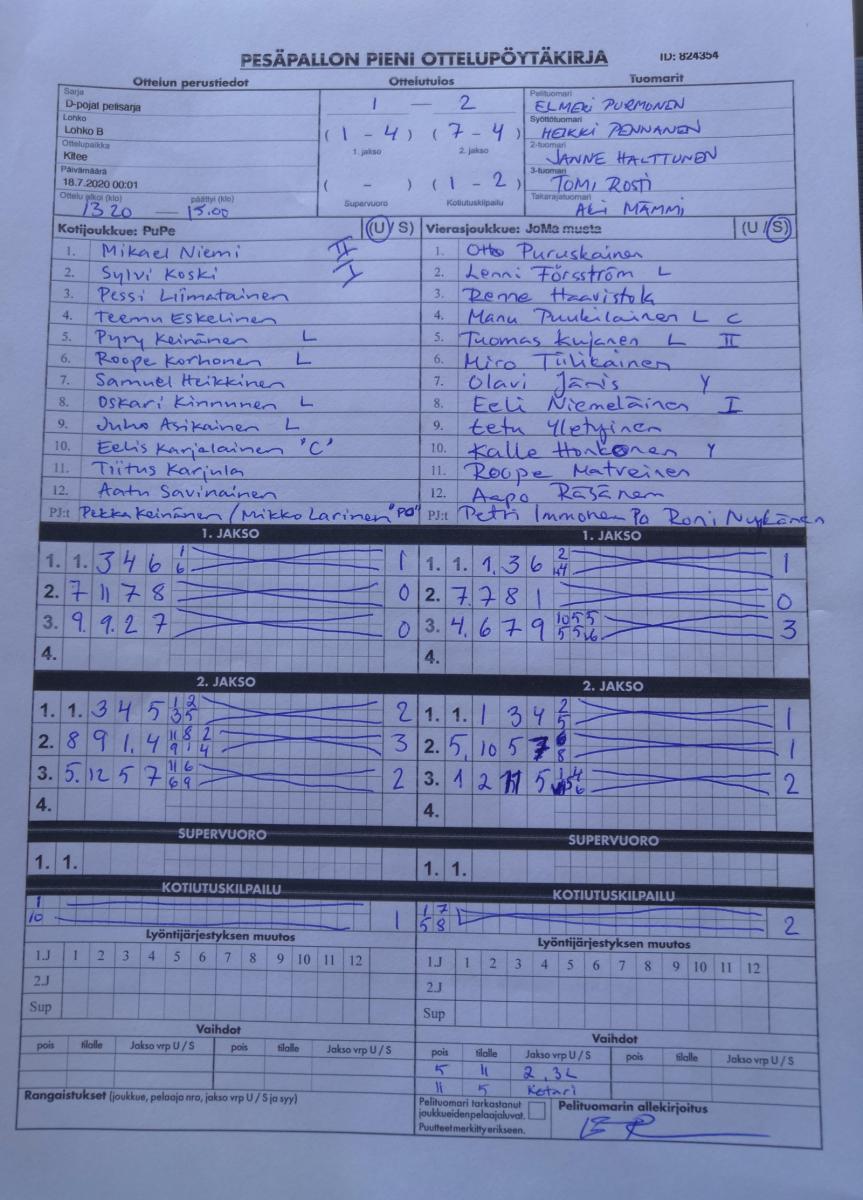 PESÄPALLON PIENI OTTELUPÖYTÄKIRJA ID: 824354
Ottelun perustiedot Ottelutulos Tuomarit
Sarja
D-pojat pelisarja
Lohko
Lohko B
Ottelupaikka
Kitee
Päivämäärä
18.7.2020 00:01
Ottelu alkoi (klo) päättyi (klo)
13 20 — 15.00
1 — 2
(1 - 4) (7 - 4)
1. jakso 2. jakso
( - ) (1 - 2)
Supervuoro Kotiutuskilpailu
Pelituomari
ELMERI PURMONEN
Syöttötuomari
HEIKKI PENNANEN
2-tuomari
JANNE HALTTUNEN
3-tuomari
TOMI ROSTI
Takarajatuomari
ALI MÄMMI
Kotijoukkue: PuPe (U / S)
1. Mikael Niemi II
2. Sylvi Koski I
3. Pessi Liimatainen
4. Teemu Eskelinen
5. Pyry Keinänen L
6. Roope Korhonen L
7. Samuel Heikkinen
8. Oskari Kinnunen L
9. Juho Asikainen L
10. Eelis Karjalainen "C"
11. Tiitus Karjula
12. Aatu Savinainen
PJ:t Pekka Keinänen / Mikko Larinen "PO"
Vierasjoukkue: JoMa musta (U / S)
1. Otto Puruskainen
2. Lenni Försström L
3. Renne
4. Manu L C
5. Tuomas Kujanen L II
6. Miro Tiilikainen
7. Olavi Jänis Y
8. Eeli Niemeläinen I
9. Eetu Yletyinen
10. Kalle Honkonen Y
11. Roope Matveinen
12. Aapo Räsänen
PJ:t Petri Immonen Po Roni Nykänen
1. JAKSO
1. 1. 3 4 6 1 6 1
2. 7 11 7 8 0
3. 9. 9. 2 7 0
4.
1. JAKSO
1. 1. 1. 3 6 2 4 1
2. 7. 7 8 1 0
3. 4. 6 7 9 10 5 5 5 5 6 3
4.
2. JAKSO
1. 1. 3 4 5 1 2 3 5 2
2. 8 9 1. 4 11 8 2 9 1 4 3
3. 5. 12 5 7 11 6 6 9 2
4.
2. JAKSO
1. 1. 1 3 4 2 5 1
2. 5. 10 5 7 6 8 1
3. 1 2 11 5 1 4 6 2
4.
SUPERVUORO
1. 1.
SUPERVUORO
1. 1.
KOTIUTUSKILPAILU
1 10 1
KOTIUTUSKILPAILU
1 7 5 8 2
Lyöntijärjestyksen muutos
1.J 1 2 3 4 5 6 7 8 9 10 11 12
2.J
Sup
Lyöntijärjestyksen muutos
1.J 1 2 3 4 5 6 7 8 9 10 11 12
2.J
Sup
Vaihdot
pois tilalle Jakso vrp U / S pois tilalle Jakso vrp U / S
Vaihdot
pois tilalle Jakso vrp U / S pois tilalle Jakso vrp U / S
5 11 2, 3L
11 5 Kotari
Rangaistukset (joukkue, pelaaja nro, jakso vrp U / S ja syy)
Pelituomari tarkastanut
joukkueiden pelaajaluvat.
Puutteet merkitty erikseen.
Pelituomarin allekirjoitus